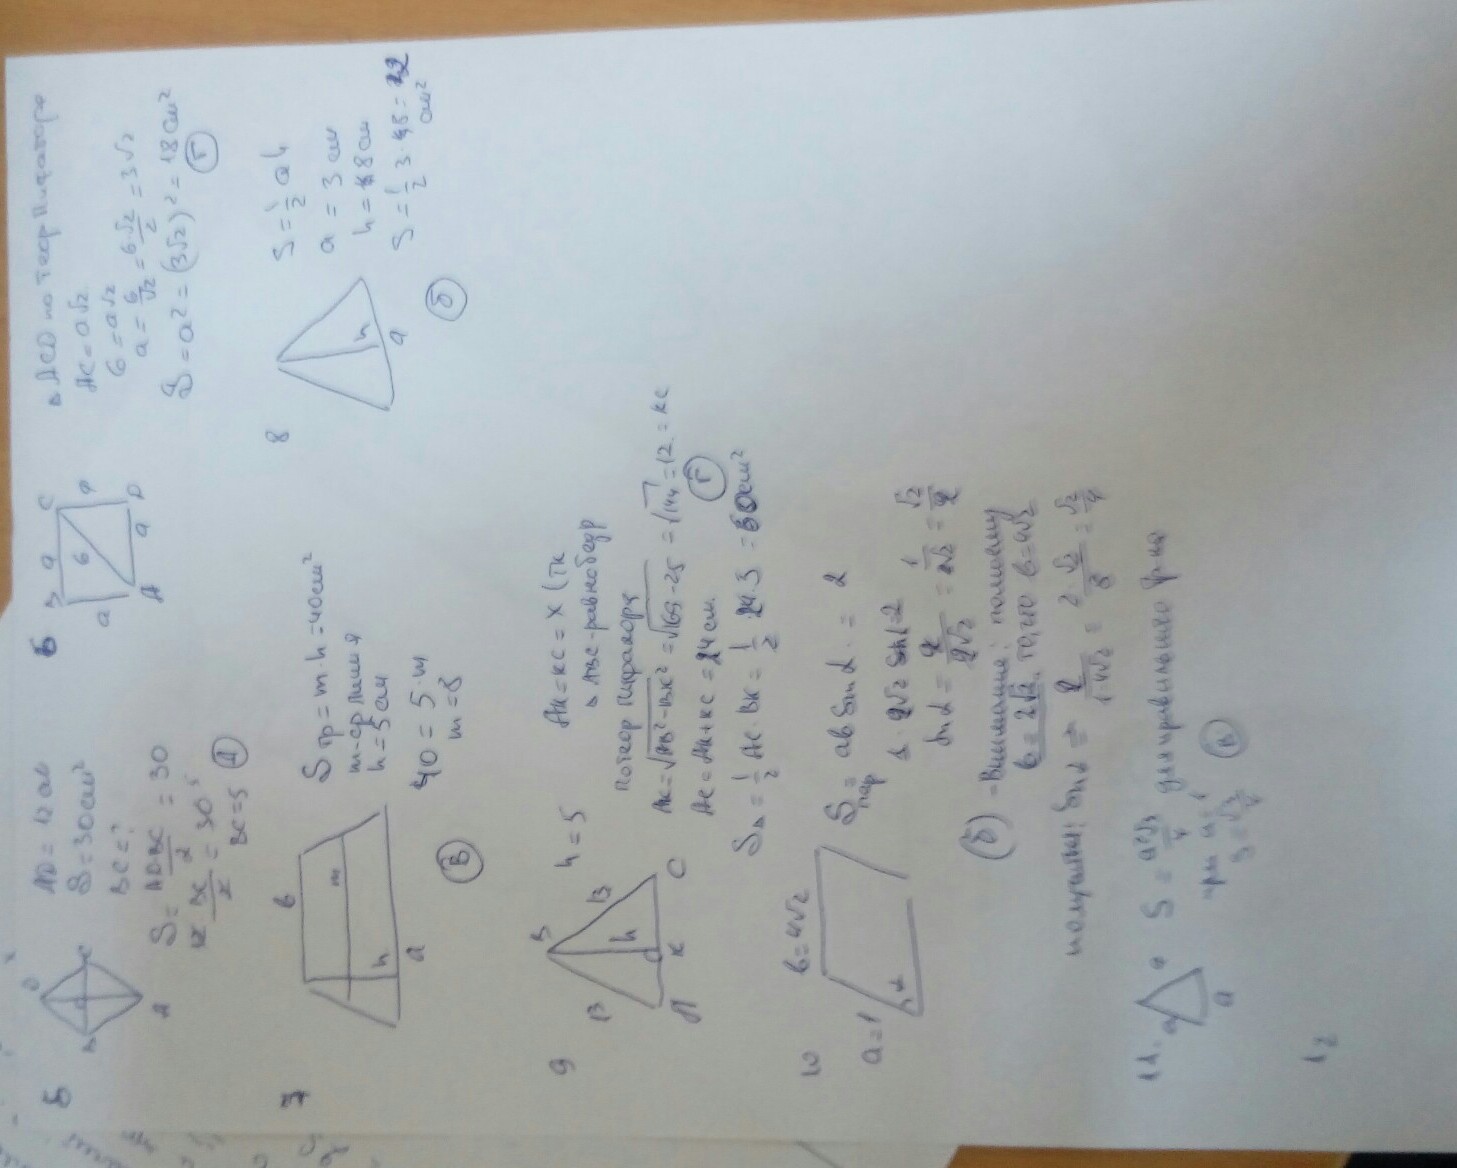 5
AD = 12 см
S = 30 см²
BC = ?
S = AD·BC / 2 = 30
12·BC / 2 = 30
BC = 5
Д
6
B a C
a 6 a
A a D
Δ ACD по теор Пифагора
AC = a√2
6 = a√2
a = 6/√2 = 6√2/2 = 3√2
S = a² = (3√2)² = 18 см²
Г
7
b
m
h
a
Sтр = m·h = 40 см²
m - ср линия
h = 5 см
40 = 5·m
m = 8
В
8
h
a
S = ½ ah
a = 3 см
h = 8 см
S = ½ 3·
см²
б
9
B
13 13
h
A K C
h = 5
AK = KC = x (тк
Δ ABC - равнобедр
по теор Пифагора
AK = √AB² - BK² = √169 - 25 = √144 = 12 = KC
AC = AK + KC = 24 см.
Г
SΔ = ½ AC · BK = ½ 24·5 = 60 см²
10
b = 4√2
a = 1
α
Sпар = ab sin α = 2
sin α = 2/2√2 = = √2/2
б - Внимание:
b = 2√2, то,что b = 4√2
получилы: sin α = 2/1·4√2 = 2·√2/8 = √2/4
11.
a a
a
S = a²√3/4 для правильного
при a = 1
S = √3/4
12